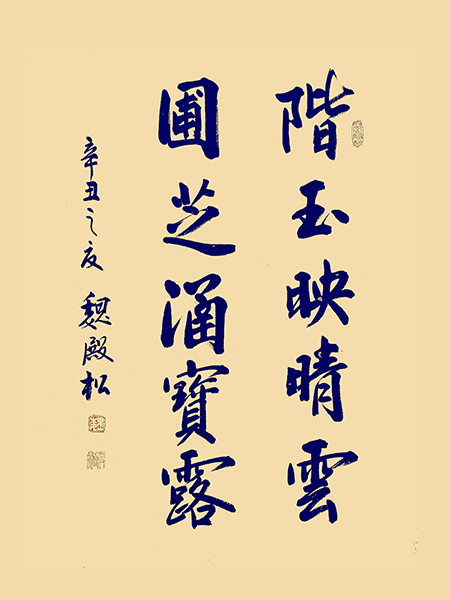 階玉映晴雲
圃芝涵寶露
辛丑之夏 魏殿松